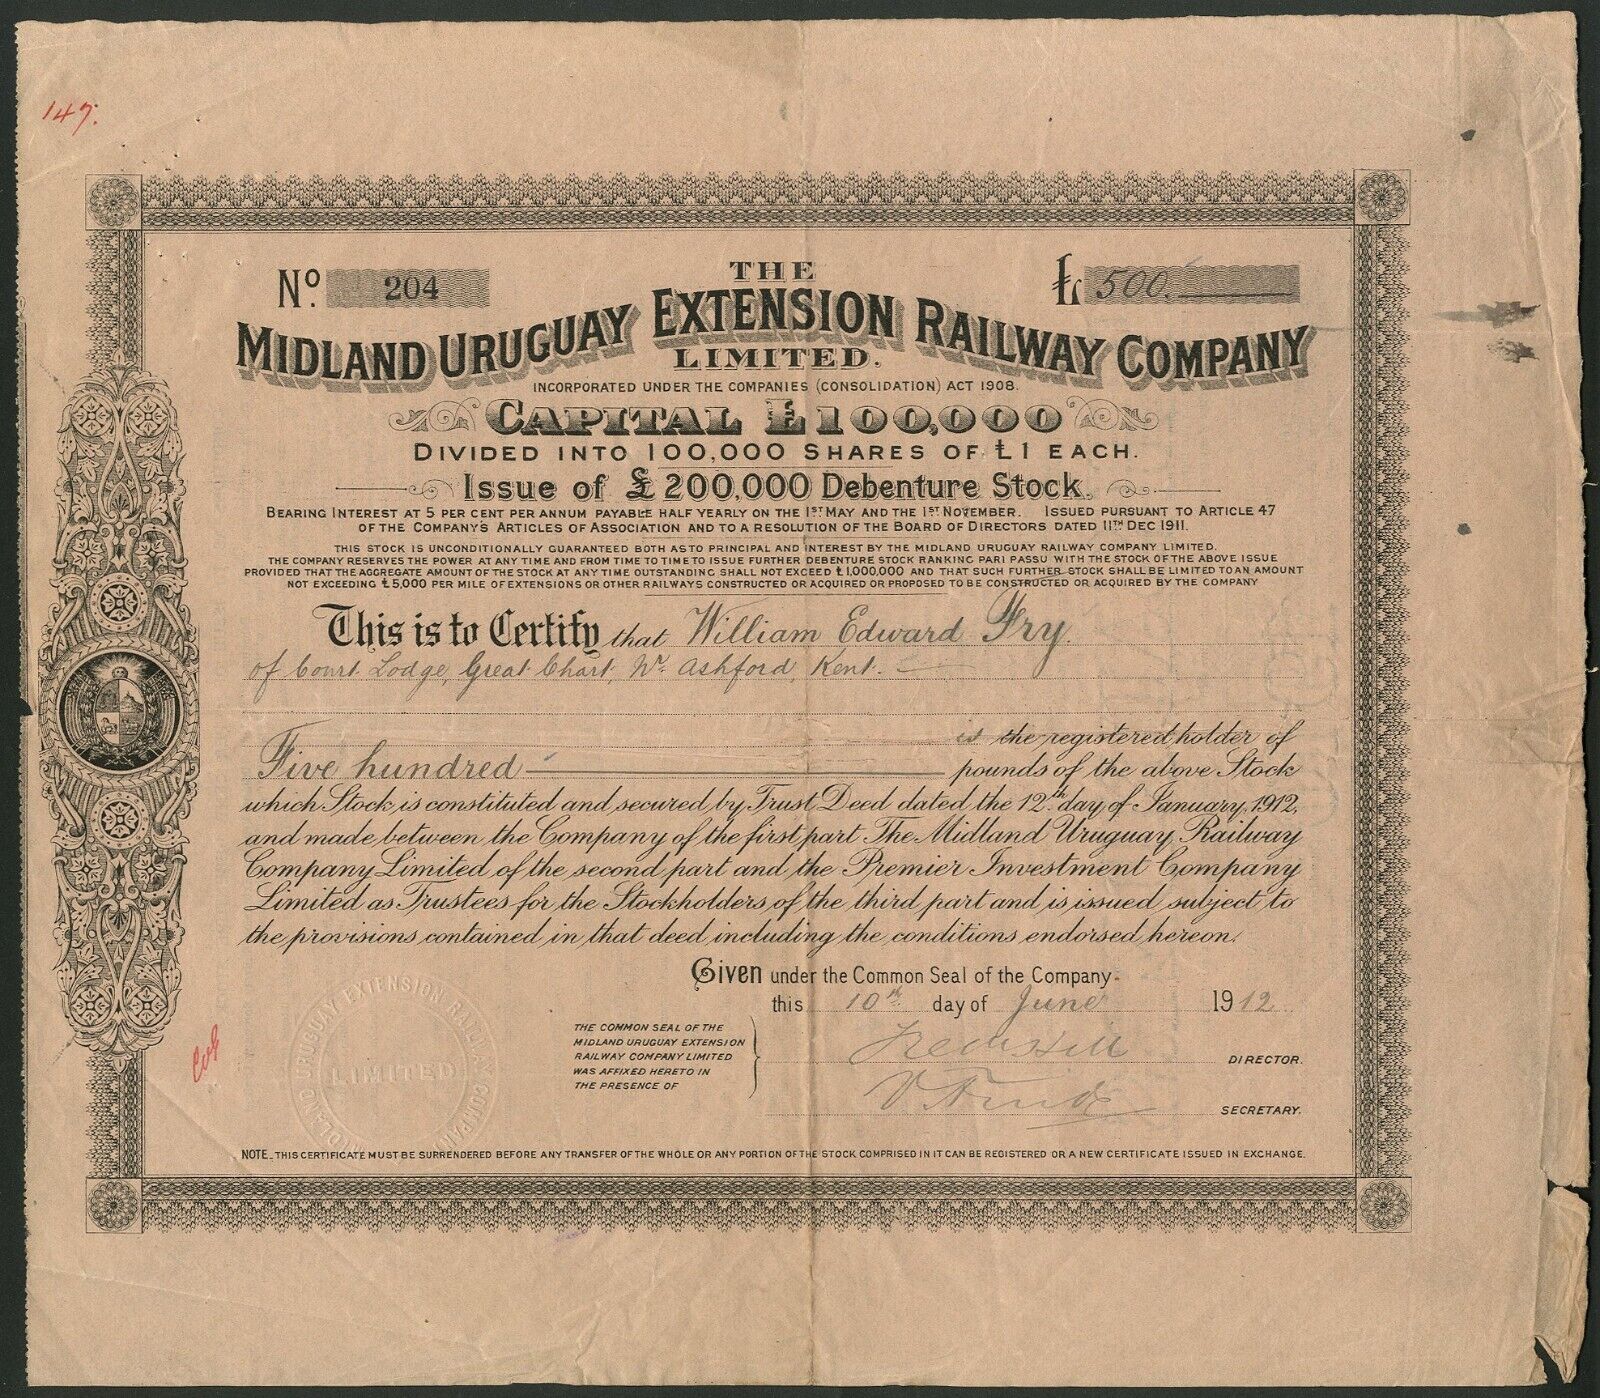 147.
No. 204
£ 500.
THE
MIDLAND URUGUAY EXTENSION RAILWAY COMPANY
LIMITED.
INCORPORATED UNDER THE COMPANIES (CONSOLIDATION) ACT 1908.
CAPITAL £100,000
DIVIDED INTO 100,000 SHARES OF £1 EACH.
Issue of £200,000 Debenture Stock.
BEARING INTEREST AT 5 PER CENT PER ANNUM PAYABLE HALF YEARLY ON THE 1ST MAY AND THE 1ST NOVEMBER. ISSUED PURSUANT TO ARTICLE 47
OF THE COMPANY'S ARTICLES OF ASSOCIATION AND TO A RESOLUTION OF THE BOARD OF DIRECTORS DATED 11TH DEC 1911.
THIS STOCK IS UNCONDITIONALLY GUARANTEED BOTH AS TO PRINCIPAL AND INTEREST BY THE MIDLAND URUGUAY RAILWAY COMPANY LIMITED.
THE COMPANY RESERVES THE POWER AT ANY TIME AND FROM TIME TO TIME TO ISSUE FURTHER DEBENTURE STOCK RANKING PARI PASSU WITH THE STOCK OF THE ABOVE ISSUE
PROVIDED THAT THE AGGREGATE AMOUNT OF THE STOCK AT ANY TIME OUTSTANDING SHALL NOT EXCEED £1,000,000 AND THAT SUCH FURTHER STOCK SHALL BE LIMITED TO AN AMOUNT
NOT EXCEEDING £5,000 PER MILE OF EXTENSIONS OR OTHER RAILWAYS CONSTRUCTED OR ACQUIRED OR PROPOSED TO BE CONSTRUCTED OR ACQUIRED BY THE COMPANY
This is to Certify that William Edward Fry.
of Court Lodge, Great Chart, Nr. Ashford, Kent.
is the registered holder of
Five hundred pounds of the above Stock
which Stock is constituted and secured by Trust Deed dated the 12th day of January, 1912,
and made between the Company of the first part The Midland Uruguay Railway
Company Limited of the second part and the Premier Investment Company
Limited as Trustees for the Stockholders of the third part and is issued subject to
the provisions contained in that deed including the conditions endorsed hereon.
Given under the Common Seal of the Company
this 10th day of June 1912
THE COMMON SEAL OF THE
MIDLAND URUGUAY EXTENSION
RAILWAY COMPANY LIMITED
WAS AFFIXED HERETO IN
THE PRESENCE OF
DIRECTOR.
SECRETARY.
MIDLAND URUGUAY EXTENSION RAILWAY COMPANY
LIMITED
NOTE. THIS CERTIFICATE MUST BE SURRENDERED BEFORE ANY TRANSFER OF THE WHOLE OR ANY PORTION OF THE STOCK COMPRISED IN IT CAN BE REGISTERED OR A NEW CERTIFICATE ISSUED IN EXCHANGE.